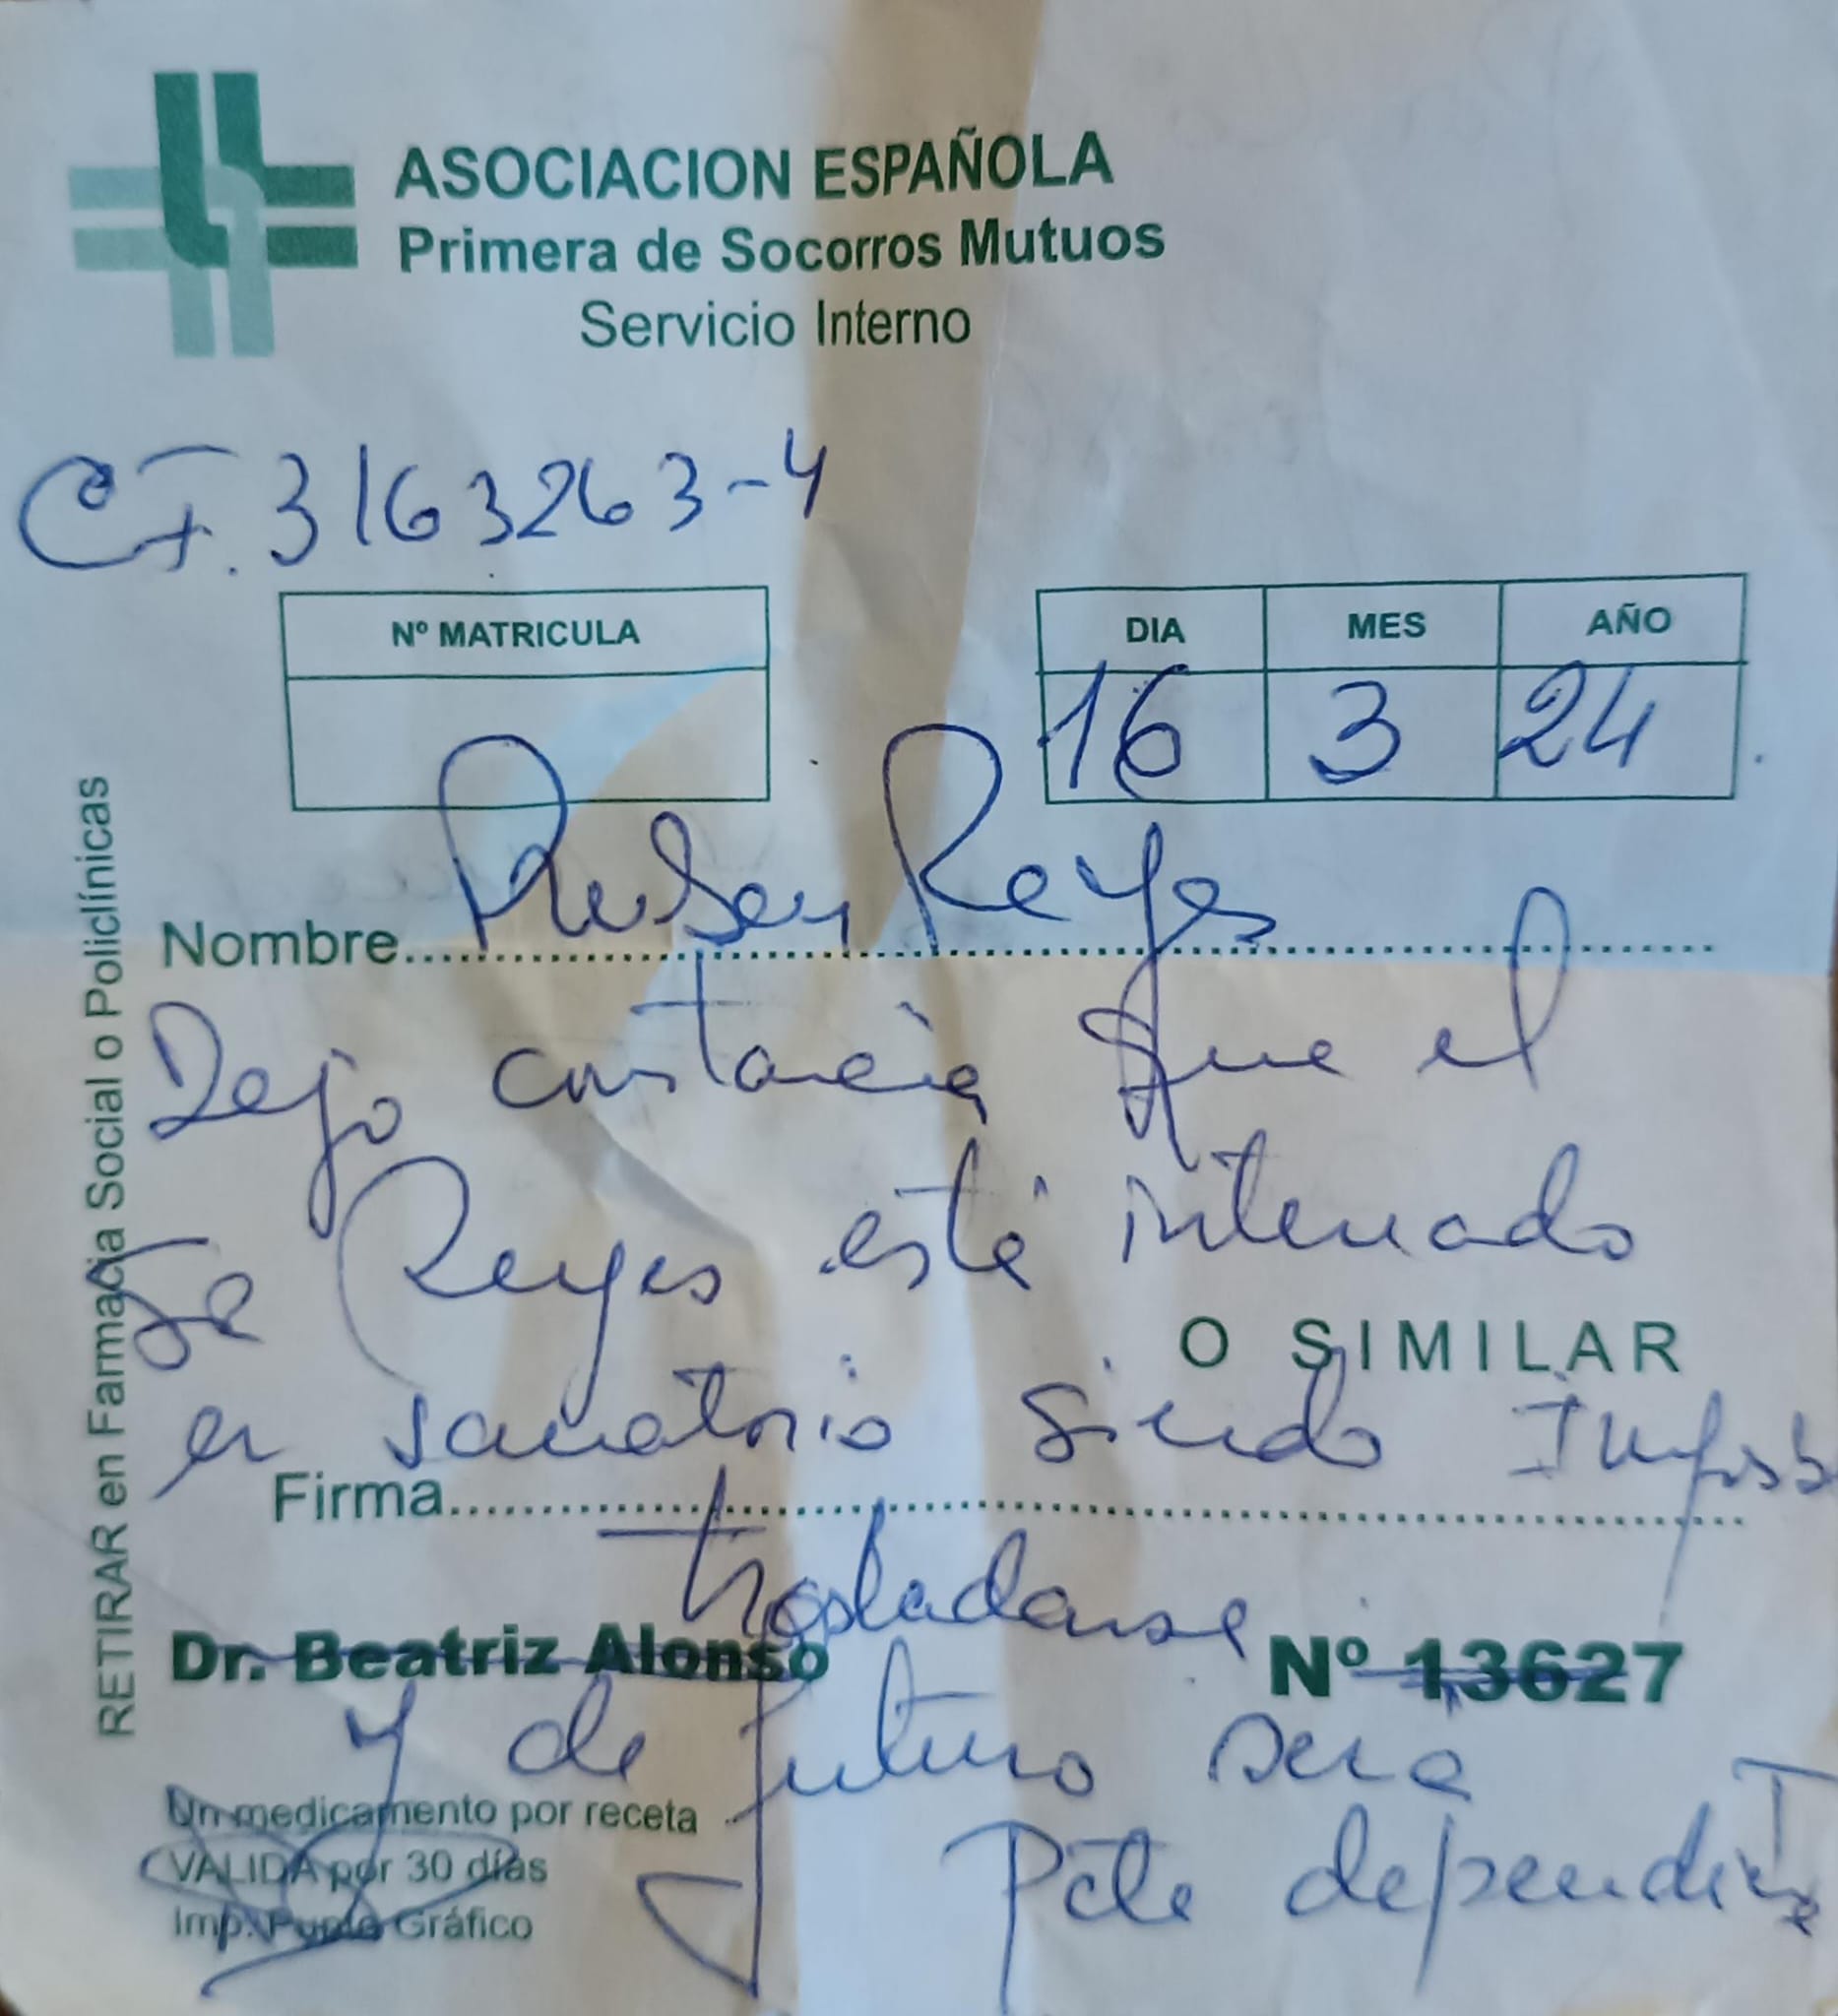 ASOCIACION ESPAÑOLA
Primera de Socorros Mutuos
Servicio Interno
CI. 3163263-4
Nº MATRICULA
DIA MES AÑO
16 3 24
Nombre Ruben Reyes
Dejo constancia que el
Sr Reyes está internado
O SIMILAR
en sanatorio siendo Imposib
Firma
trasladarse
Dr. Beatriz Alonso Nº 13627
y de futuro será
Pcte dependiente
Un medicamento por receta
VALIDA por 30 días
Imp. Punto Gráfico
RETIRAR en Farmacia Social o Policlínicas